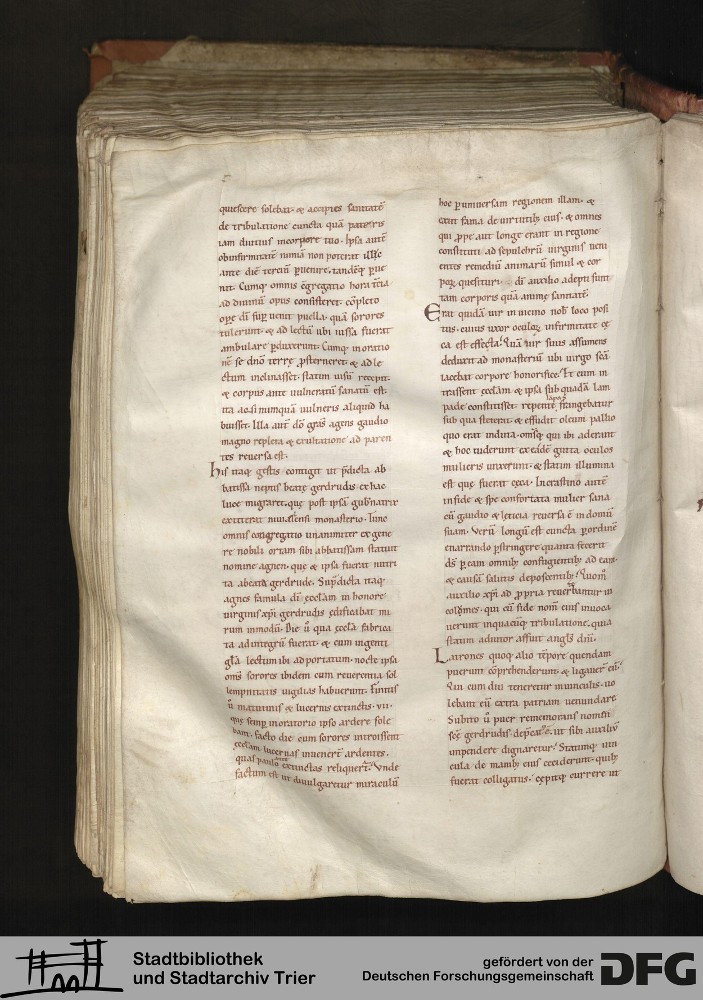 quiescere solebat· & accipies sanitatē
de tribulatione cuncta quā pateris
iam diutius incorpore tuo· Ipsa autē
obinfirmitatē nimiā non poterat illic
ante diē terciū puenire· tandēq; pue
nit· Cumq; omnis ɔgregatio hora tcia
ad diuinū opus consisteret· cōpleto
ope dī sup uenit puella· quā sorores
tulerunt· & ad lectū ubi iussa fuerat
ambulare pduxerunt· Cumq; inoratio
nē se dno terrę psterneret· & ad le
ctum inclinasset· statim uisū recepit·
& corpus ante uulneratū sanatū est·
ita ac si nunquā uulneris aliquid ha
buisset· Illa aut dō gras agens gaudio
magno repleta & exultatione ad paren
tes reuersa est·
His itaq; gestis contigit ut pdicta ab
batissa neptis beatę gerdrudis ex hac
luce migraret· que post ipsā gubnatrix
extiterat monasterio· Tunc
omnis congregatio unanimiter ex gene
re nobili ortam sibi abbatissam statuit
nomine agnen· que & ipsa fuerat nutri
ta abeata gerdrude· Supdicta itaq;
agnes famula dī ęcclam in honore
uirginis xpi gerdrudis ędificabat mi
rum inmodū· Die ū qua ęccla fabrica
ta adintegrū fuerat· & cum ingenti
gla lectum ibi adportatum· nocte ipsa
oms sorores ibidem cum reuerentia sol
lempnitatis uigilias habuerunt· Finitis
ū matutinis & lucernis extinctis· vii·
que semp inoratorio ipso ardere sole
bant· facto die cum sorores introissent
ęcclam lucernas inuenert ardentes·
quas paulo ante extinctas reliquert· Vnde
factum est ut diuulgaretur miraculū
hoc p uniuersam regionem illam· &
exiit fama de uirtutib; eius· & omnes
qui ppe aut longe erant in regione
constituti ad sepulchrū uirginis ueni
entes remediū animarū simul & cor
poꝝ quesituri· dī auxilio adepti sunt
tam corporis quā animę sanitatē·
Erat quidā uir in uicino nob loco posi
tus· cuius uxor oculoꝝ infirmitate cę
ca est effecta· Quā uir suus assumens
deduxit ad monasteriū ubi uirgo scā
iacebat corpore honorifice· Et cum in
trassent ęcclam & ipsa sub quadā lam
pade constitisset· repente lapas frangebatur
sub qua steterat· & effudit oleum pallio
quo erat induta· omsq; qui ibi aderant
& hoc uiderunt· ex eadē gutta oculos
mulieris unxerunt· & statim illumina
est quę fuerat cęca· Incrastino autē
in fide & spe confortata mulier sana
cū gaudio & leticia reuersa ē in domū
suam· Verū longū est cuncta p ordinē
enarrando pstringere quanta fecerit
ds p eam omnib; confugientib; ad eam·
& causā salutis deposcentib; Quom
auxilio xpi ad ppria reuertebantur in
colomes· qui cū fide nom eius inuoca
uerunt inquacūq; tribulatione· qua
statim adiutor affuit angls dni·
Latrones quoq; alio tēpore quendam
puerum cōprehenderunt· & ligauert eū·
Qui cum diu teneretur inuinculis· uo
lebant eū extra patriam uenundare
Subito ū puer rememorans nomen
scę gerdrudis· depcat· ē· ut sibi auxiliū
inpendere dignaretur· Statimq; uin
cula de manib; eius ceciderunt· quib;
fuerat colligatus· cepitq; currere ut
Stadtbibliothek
und Stadtarchiv Trier
gefördert von der
Deutschen Forschungsgemeinschaft
DFG